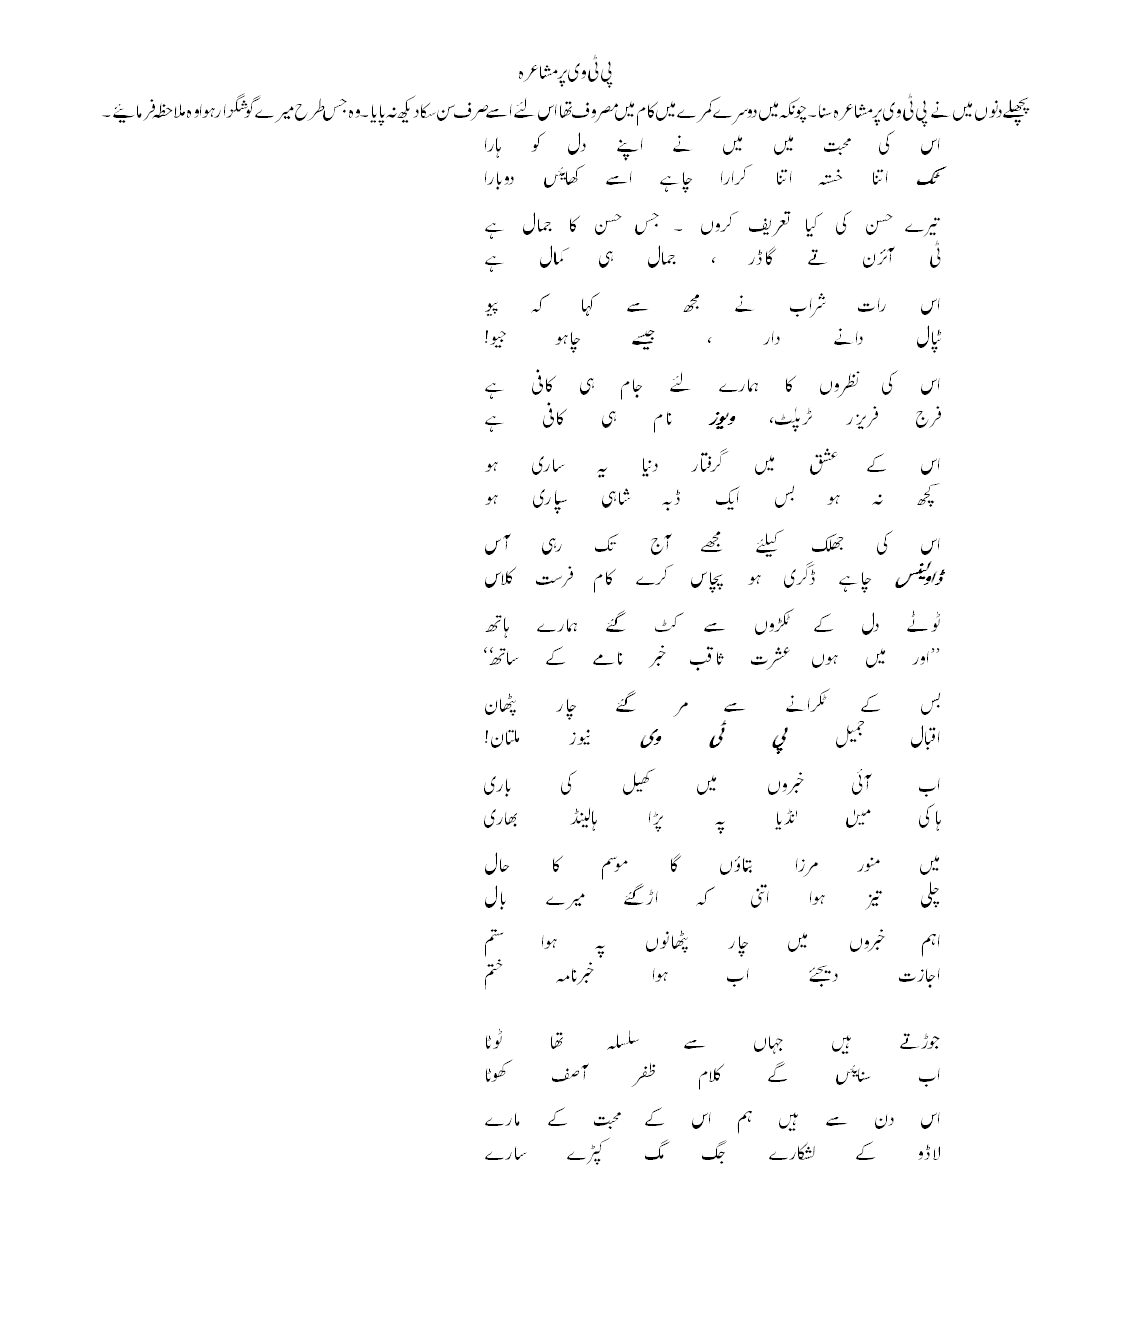 پی ٹی وی پر مشاعرہ
پچھلے دنوں میں نے پی ٹی وی پر مشاعرہ سنا۔ چونکہ میں دوسرے کمرے میں کام میں مصروف تھا اس لئے اسے صرف سن سکا دیکھ نہ پایا۔ وہ جس طرح میرے گوشگزار ہوا وہ ملاحظہ فرمائیے۔
اس کی محبت میں میں نے اپنے دل کو ہارا
ٹک اتنا خستہ اتنا کرارا چاہے اسے کھایئں دوبارا
تیرے حسن کی کیا تعریف کروں ۔ جس حسن کا جمال ہے
ٹی آئرن قے گاڈر ، جمال ہی کمال ہے
اس رات شراب نے مجھ سے کہا کہ پیو
ٹپال دانے دار ، جیسے چاہو جیو!
اس کی نظروں کا ہمارے لئے جام ہی کافی ہے
فرج فریزر ٹرپلٹ، ویوز نام ہی کافی ہے
اس کے عشق میں گرفتار دنیا یہ ساری ہو
کچھ نہ ہو بس ایک ڈبہ شاہی سپاری ہو
اس کی جھلک کیلئے مجھے آج تک رہی آس
ڈاولینس چاہے ڈگری ہو پچاس کرے کام فرسٹ کلاس
ٹوٹے دل کے ٹکڑوں سے کٹ گئے ہمارے ہاتھ
”اور میں ہوں عشرت ثاقب خبر نامے کے ساتھ“
بس کے ٹکرانے سے مر گئے چار پٹھان
اقبال جمیل پی ٹی وی نیوز ملتان!
اب آئی خبروں میں کھیل کی باری
ہاکی میں انڈیا پہ پڑا ہالینڈ بھاری
میں منور مرزا بتاؤں گا موسم کا حال
چلی تیز ہوا اتنی کہ اڑ گئے میرے بال
اہم خبروں میں چار پٹھانوں پہ ہوا ستم
اجازت دیجئے اب ہوا خبرنامہ ختم
جوڑتے ہیں جہاں سے سلسلہ تھا ٹوٹا
اب سنایئں گے کلام ظفر آصف کھوٹا
اس دن سے ہیں ہم اس کے محبت کے مارے
لاڈو کے لشکارے جگ مگ کپڑے سارے